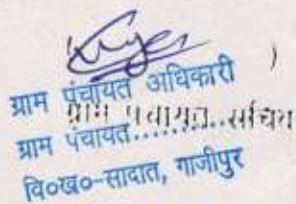 )
ग्राम पंचायत अधिकारी
ग्राम पंचायत सचिव
ग्राम पंचायत.........
वि०ख०-सादात, गाजीपुर